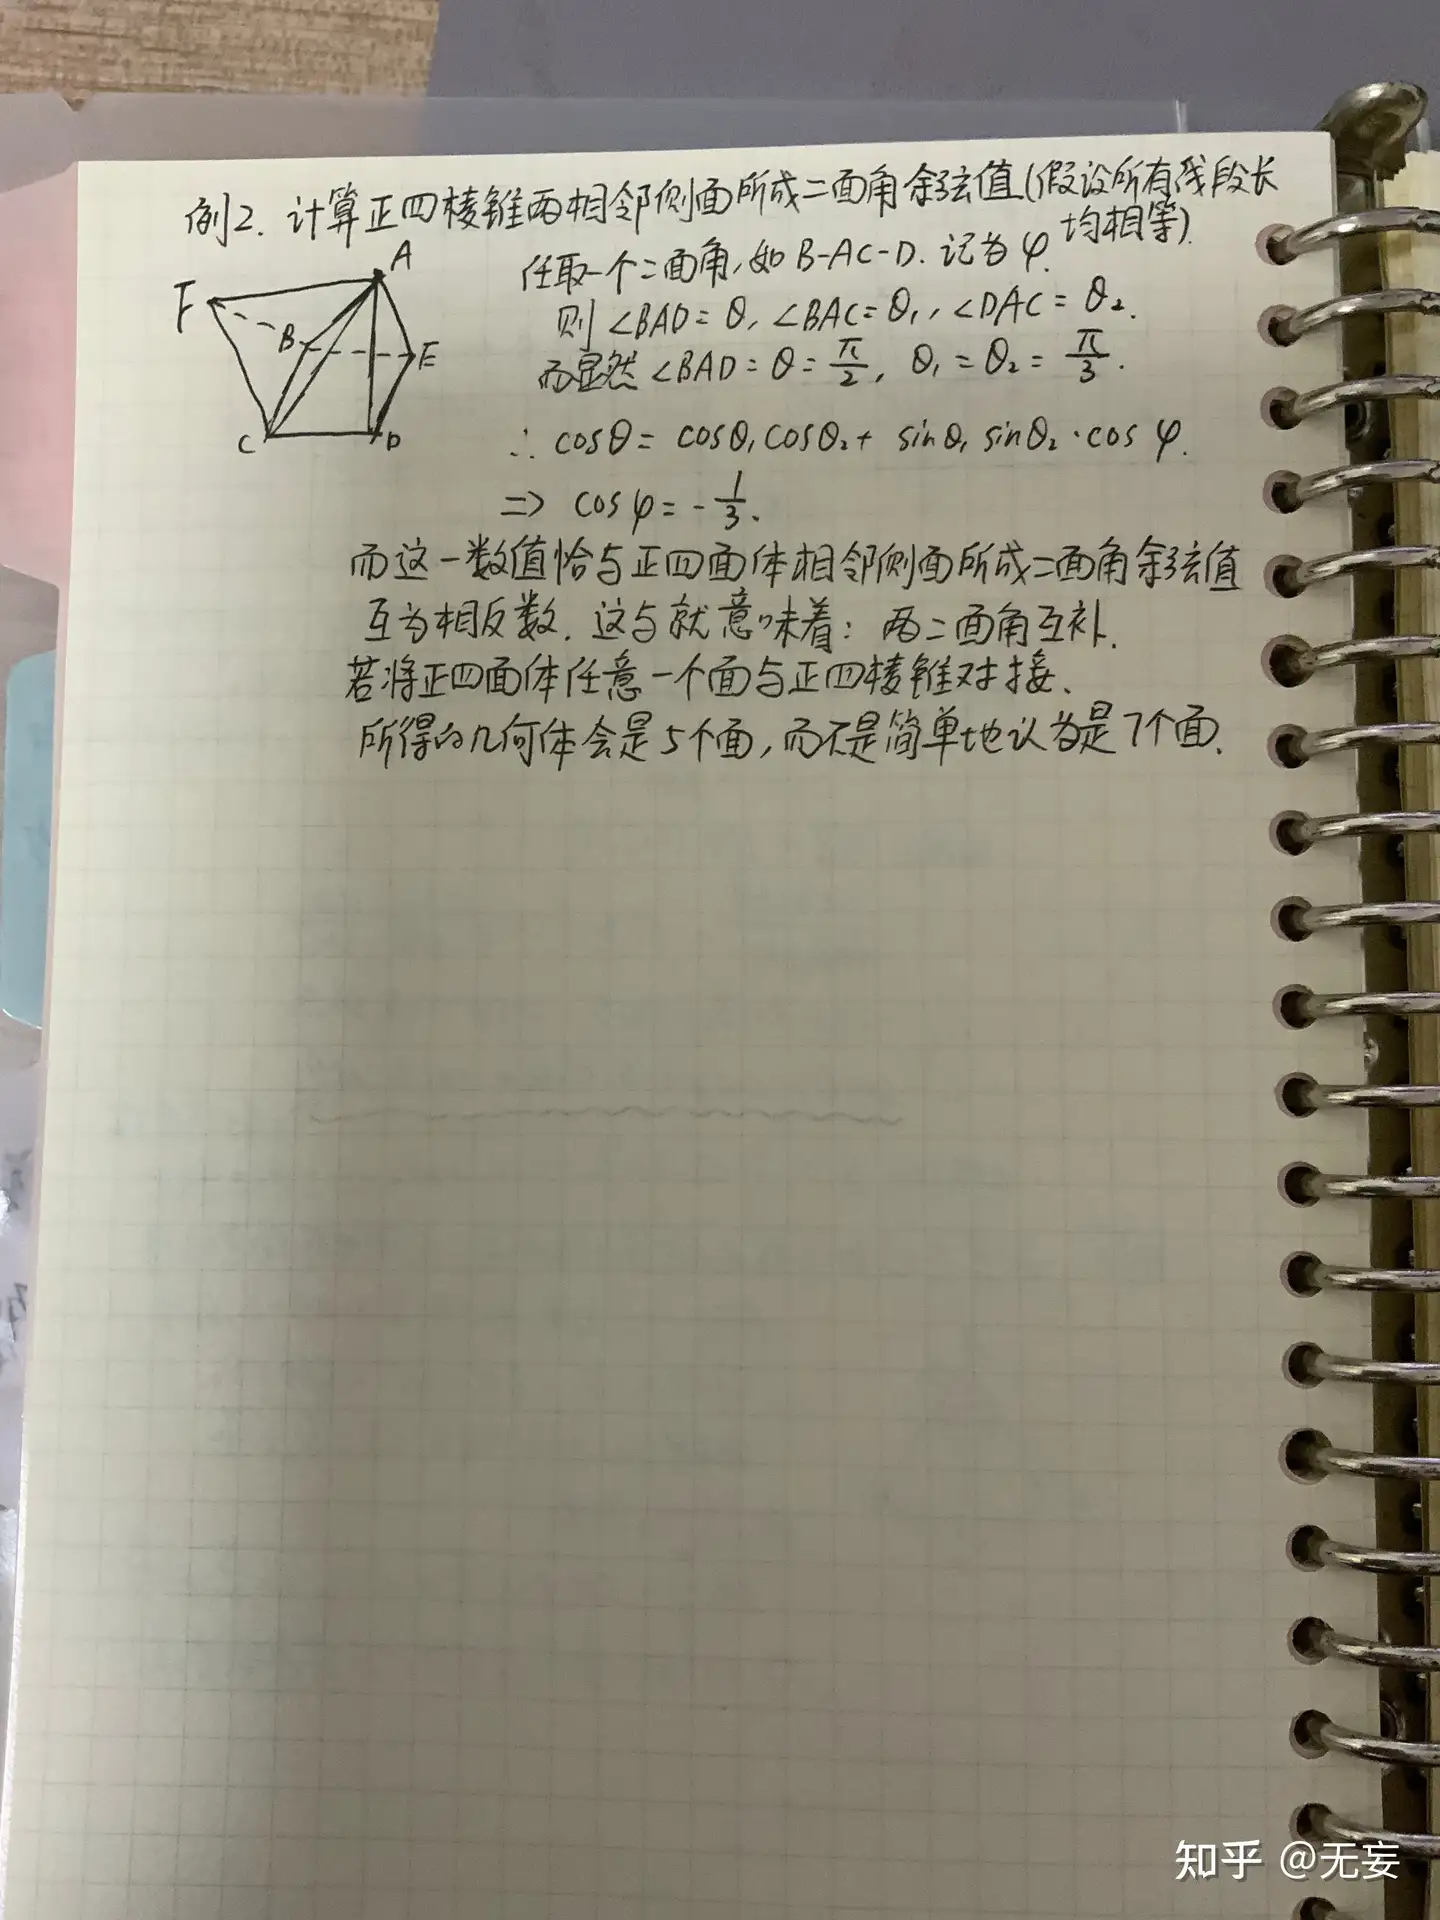 例2. 计算正四棱锥两相邻侧面所成二面角余弦值(假设所有线段长
均相等).
A
F
B
E
C
D
任取一个二面角,如 B-AC-D. 记为 φ.
则 ∠BAD = θ, ∠BAC = θ₁, ∠DAC = θ₂.
而显然 ∠BAD = θ = π/2, θ₁ = θ₂ = π/3.
∴ cosθ = cosθ₁cosθ₂ + sinθ₁ sinθ₂·cos φ.
=> cos φ = -1/3.
而这一数值恰与正四面体相邻侧面所成二面角余弦值
互为相反数. 这与就意味着: 两二面角互补.
若将正四面体任意一个面与正四棱锥对接、
所得的几何体会是5个面, 而不是简单地认为是7个面.
知乎 @无妄